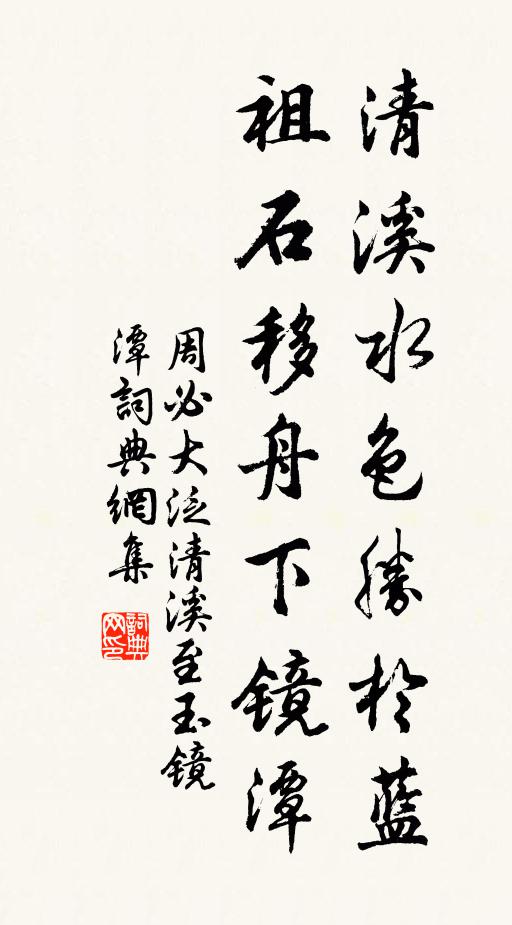 清溪水色勝於藍
祖石移舟下镜潭
周必大泛清溪至玉镜
潭詞典網集
詞典
网印